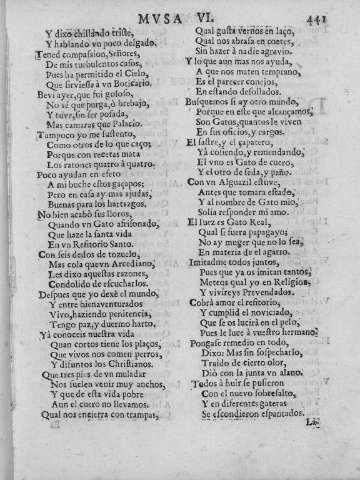 MVSA VI.
441
Y dixo chillando triste,
Y hablando vn poco delgado.
Tened compassion, Señores,
De mis turbulentos casos,
Pues ha permitido el Cielo,
Que sirviesse à vn Boticario.
Bevi ayer, que fui goloso,
No sé que purga, ò brebajo,
Y tuve, sin ser posada,
Mas camaras que Palacio.
Tampoco yo me sustento,
Como otros de lo que caço;
Porque con recetas mata
Los ratones quatro à quatro.
Poco ayudan en efeto
A mi buche estos gaçapos;
Pero en casa ay mas ajudas,
Buenas para los hartazgos.
No bien acabò sus lloros,
Quando vn Gato afrisonado,
Que haze la santa vida
En vn Refitorio Santo.
Con seis dedos de tozuelo,
Mas cola que vn Arcediano,
Les dixo aquestas razones,
Condolido de escucharlos.
Despues que yo dexè el mundo,
Y entre bienaventurados
Vivo, haziendo penitencia,
Tengo paz, y duermo harto.
Yà conoceis nuestra vida
Quan cortos tiene los plaços,
Que vivos nos comen perros,
Y difuntos los Christianos.
Que tres pies de vn muladar
Nos suelen venir muy anchos,
Y que de esta vida pobre
Aun el cuero no llevamos.
Qual nos encierra con trampas,
Qual gusta vernos en laço,
Qual nos abrasa en coetes,
Sin hazer à nadie agravio.
Y lo que aun mas nos ayuda,
A que nos maten temprano,
Es el parecer conejos,
En estando desollados.
Busquemos si ay otro mundo,
Porque en este que alcançamos,
Son Gatos, quantos le viven
En sus oficios, y cargos.
El sastre, y el çapatero,
Yà cosiendo, y remendando,
El vno es Gato de cuero,
Y el otro de seda, y paño.
Con vn Alguazil estuve,
Antes que tomara estado,
Y al nombre de Gato mio,
Solia responder mi amo.
El Iuez es Gato Real,
Qual si fuera papagayo;
No ay muger que no lo sea,
En materia de el agarro.
Imitadme todos juntos,
Pues que ya os imitan tantos,
Meteos qual yo en Religion,
Y vivireys Prevendados.
Cobrà amor el refitorio,
Y cumplid el noviciado,
Que se os lucirà en el pelo,
Pues le luce à vuestro hermano.
Pongase remedio en todo,
Dixo: Mas sin sospecharlo,
Traido de cierto olor,
Diò con la junta vn alano.
Todos à huir se pusieron
Con el nuevo sobresalto,
Y en diferentes gateras
Se escondieron espantados.